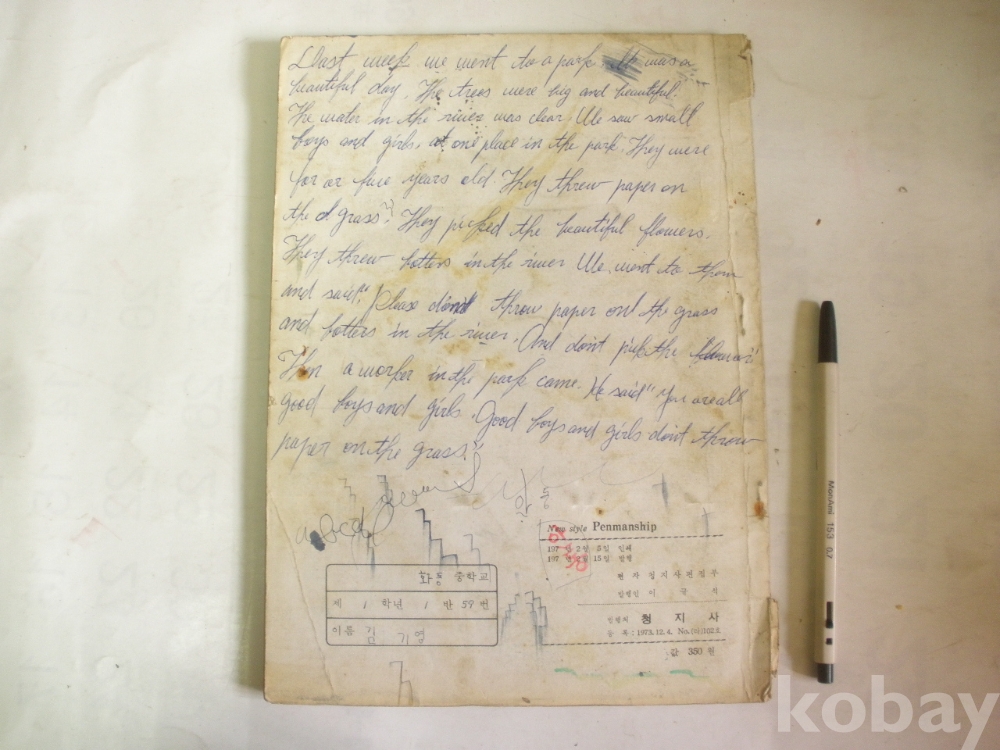 Last week we went to a park. It was a
beautiful day. The trees were big and beautiful.
The water in the river was clear. We saw small
boys and girls. at one place in the park. They were
for or five years old. They threw paper on
the grass. They picked the beautiful flowers.
They threw botters in the river We went to them
and said". Please don't throw paper on the grass
and botters in the river. And don't pick the flowers"
Then a worker in the park came. He said" You are all
good boys and girls. Good boys and girls don't throw
paper on the grass."
화동
New style Penmanship
2월 5일 인쇄
15일 발행
편자 청지사편집부
발행인 이
발행처 청지사
등록 : 1973.12.4. No.
값 350원
화동 중학교
제 1 학년 1 반 59 번
이름 김기영
MonAmi 153 0.7
kobay